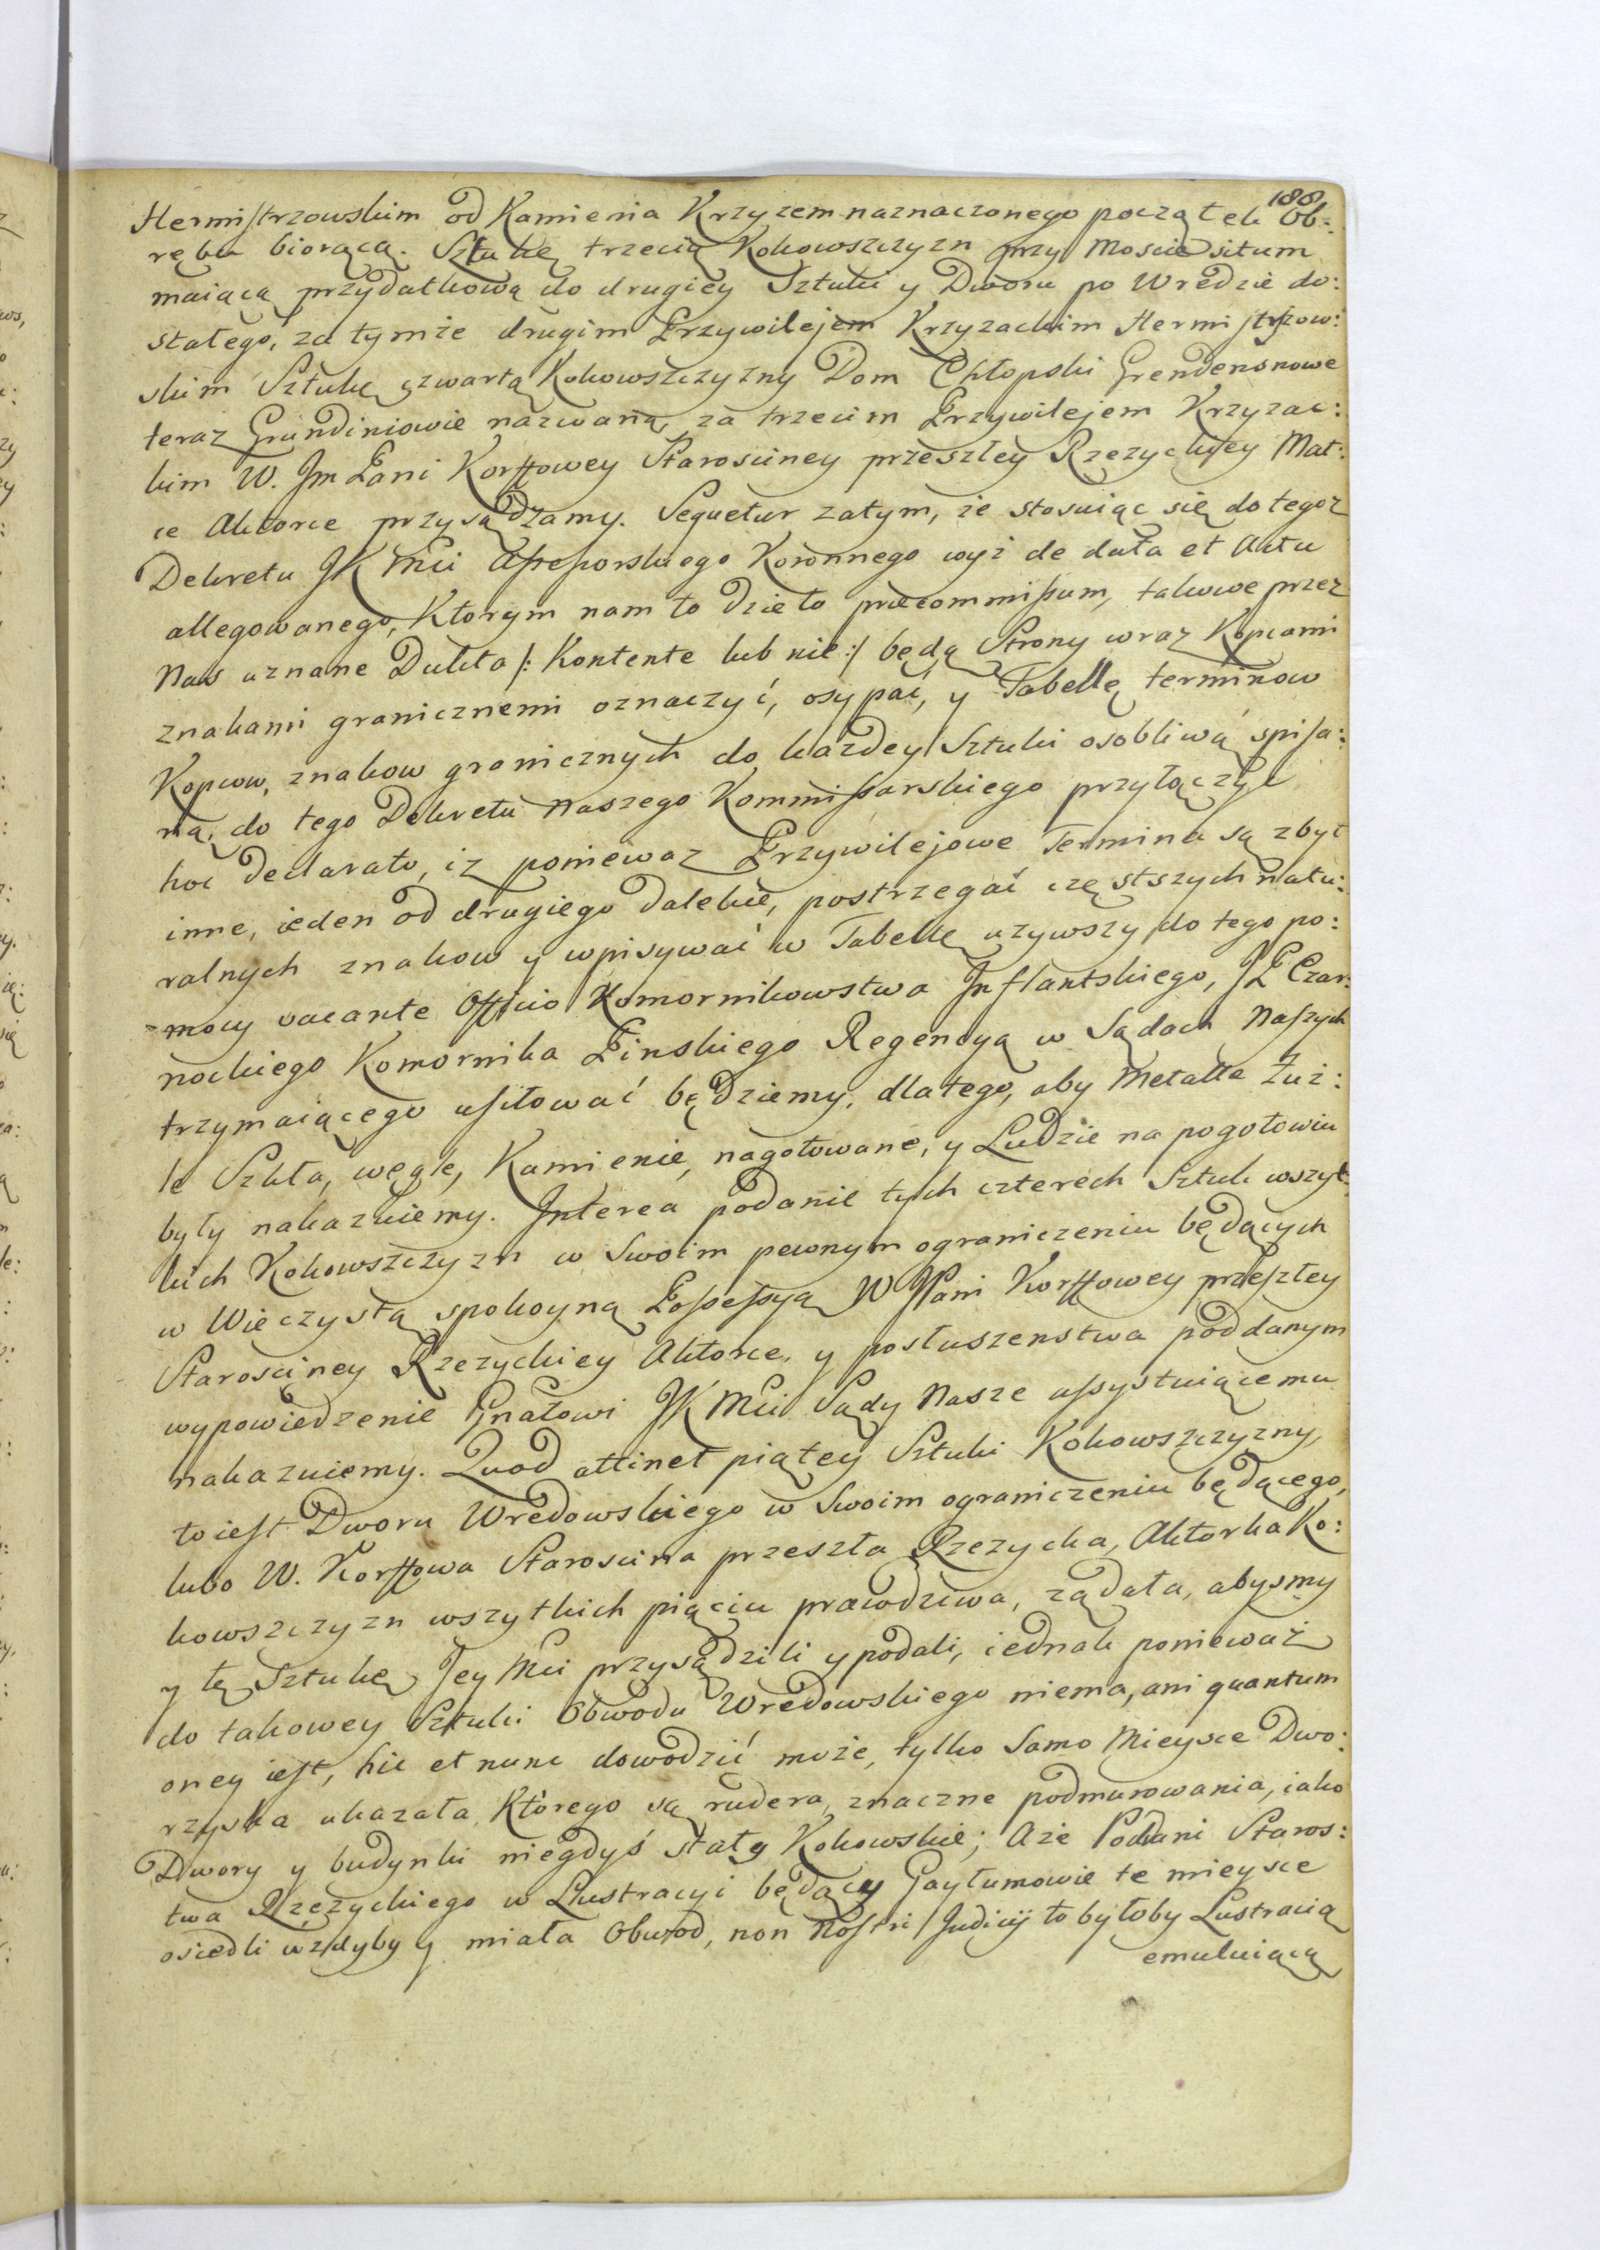 188
Hermistrzowskim od Kamienia Krzyzem naznaczonego początek Ob:
rębu biorącą. Sztukę trzecią Kokowszczyzn przy Moscie situm
maiącą przydatkową do drugiey Sztuki y Dworu po Wredzie do:
stałego, za tymże drugim Przywilejem Krzyzackim Hermistrzow:
skim Sztukę czwartą Kokowszczyzny Dom Chłopski Grendensnowe
teraz Grundiniowie nazwaną, za trzecim Przywilejem Krzyzac:
kim W. Jm Pani Korffowey Starosciney przeszłey Rzezyckiey Mat:
ce Aktorce przysądzamy. Sequetur zatym, że stosuiąc się do tegoz
Dekretu JK Mci Assessorskiego Koronnego wyż de data et Actu
allegowanego, Ktorym nam to Dzieło praecommissum, takowe przez
Nas uznane Dukta /: Kontente lub nie :/ będą Strony wraz Kopcami
znakami granicznemi oznaczyć, osypać, y Tabellę terminow
Kopcow, znakow granicznych do kazdey Sztuki osobliwą spisa:
ną, do tego Dekretu Naszego Kommissarskiego przyłączyć
hoc declarato, iz poniewaz Przywilejowe Termina są zbyt
inne, ieden od drugiego dalekie, postrzegać częstszych natu:
ralnych znakow y wpisywać w Tabellę uzywszy do tego po:
mocy vacante Officio Komornikowstwa Inflantskiego, JP Czar:
nockiego Komornika Pinskiego Regencyą w Sądach Naszych
trzymaiącego usiłować będziemy, dlatego, aby Metalla Żuż:
le Szkła, węgle, Kamienie, nagotowane, y Ludzie na pogotowiu
były nakazuiemy. Interea podanie tych czterech Sztuk wszyt:
kich Kokowszczyzn w Swoim pewnym ograniczeniu będących
w Wieczystą spokoyną Possessyą W JPani Korffowey przeszłey
Starosciney Rzezyckiey Aktorce, y posłuszenstwa poddanym
wypowiedzenie Gnałowi JK Mci Sądy Nasze assystuiącemu
nakazuiemy. Quod attinet piątey Sztuki Kokowszczyzny,
to iest Dworu Wredowskiego w Swoim ograniczeniu będącego,
lubo W. Korffowa Staroscina przeszła Rzezycka, Aktorka Ko:
kowszczyzn wszytkich pięciu prawdziwa, ządała, abysmy
y tę Sztukę Jey Mci przysądzili y podali, iednak ponieważ
do takowey Sztuki Obwodu Wredowskiego niema, ani quantum
oney iest, hic et nunc dowodzić może, tylko Samo Mieysce Dwo:
rzyska ukazała, Którego są rudera, znaczne podmurowania, iako
Dwory y budynki niegdyś stały Kokowskie; Aże Poddani Staros:
twa Rzezyckiego w Lustracyi będący Gaytumowie te mieysce
osiedli wzdyby y miała Obwod, non Nostri Judicij to byłoby Lustracią
emuluiącą